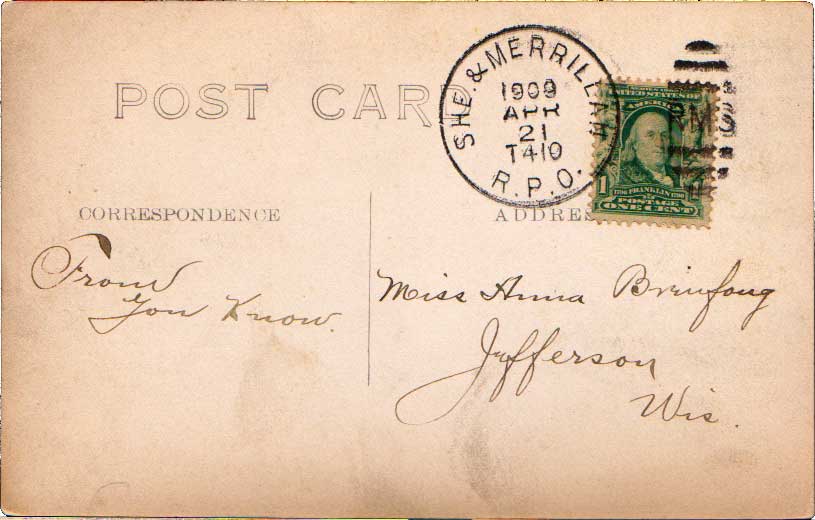 POST CARD
SHE. & MERRILLAN
1909
APR
21
T410
R.P.O.
RMS
SERIES 1902
UNITED STATES OF
AMERICA
1
1706 FRANKLIN 1790
POSTAGE
ONE CENT
CORRESPONDENCE
ADDRES
From
You Know.
Miss Anna
Jefferson
Wis.